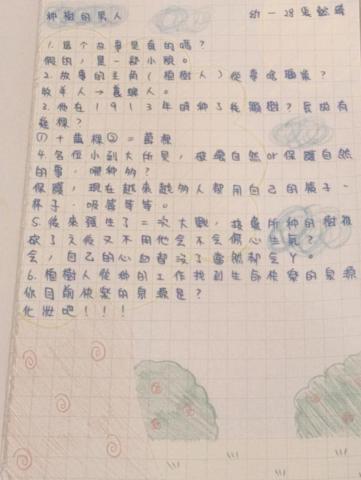 種樹的男人 幼一 28張
1.這個故事是真的嗎?
假的,是一篇小說。
2.故事的主角(種樹人)從事啥職業?
牧羊人→養蜂人。
3.他在1913年時種了幾顆樹?長出有
幾棵?
①十萬棵②=萬棵
4.各位小到大所見,破壞自然or保護自然
的事,哪種多?
保護,現在越來越多人都用自己的袋子、
杯子、吸管等等。
5.後來發生了二次大戰,故事所種的樹被
砍了之後又不用他會不會傷心生氣?
會,自己的心血都沒了當然都會ㄚ。
6.種樹人從種的工作找到生命快樂的泉源
你目前快樂的泉源是?
化妝吧!!!